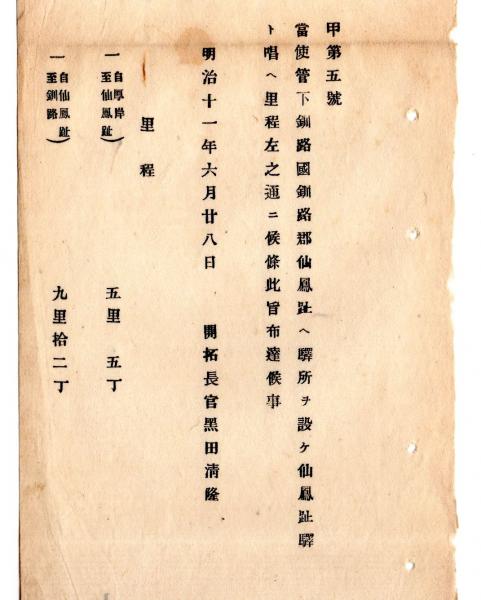 甲第五號
當使管下釧路國釧路郡仙鳳趾ヘ驛所ヲ設ケ仙鳳趾驛
ト唱ヘ里程左之通ニ候條此旨布達候事
明治十一年六月廿八日　開拓長官黑田清隆
里程
一自厚岸至仙鳳趾　五里五丁
一自仙鳳趾至釧路　九里拾二丁